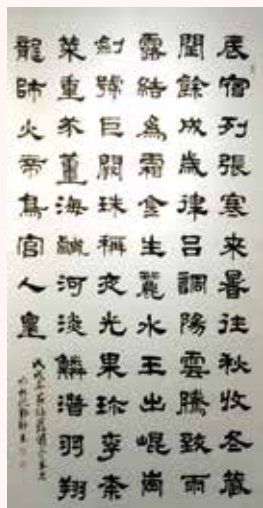 辰宿列張寒来暑往秋收冬藏
閏餘成歲律呂調陽雲騰致雨
露結爲霜金生麗水玉出崐崗
劍號巨闕珠稱夜光果珍李柰
菜重芥薑海鹹河淡鱗潛羽翔
龍師火帝鳥官人皇